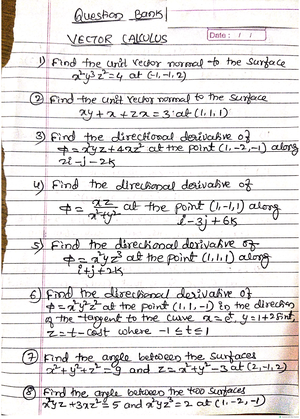 Question Bank
VECTOR CALCULUS
Date: / /
1) Find the unit vector normal to the surface
x²y³z²=4 at (-1,-1,2)
2) Find the unit vector normal to the surface
xy + x + zx = 3 at (1,1,1)
3) Find the directional derivative of
φ = x²yz + 4xz² at the point (1,-2,-1) along
2i - j - 2k
4) Find the directional derivative of
φ = xz/x²+y² at the point (1,-1,1) along
i - 3j + 6k
5) Find the directional derivative of
φ = x²yz³ at the point (1,1,1) along
i + j + 2k
6) Find the directional derivative of
φ = x²y²z² at the point (1,1,-1) in the direction
of the tangent to the curve x = eᵗ, y = 1+2sint,
z = t - cost where -1 ≤ t ≤ 1
7) Find the angle between the surfaces
x²+y²+z²=9 and z = x²+y²-3 at (2,-1,2)
8) Find the angle between the two surfaces
x²yz + 3xz² = 5 and x²yz² = 2 at (1,-2,-1)